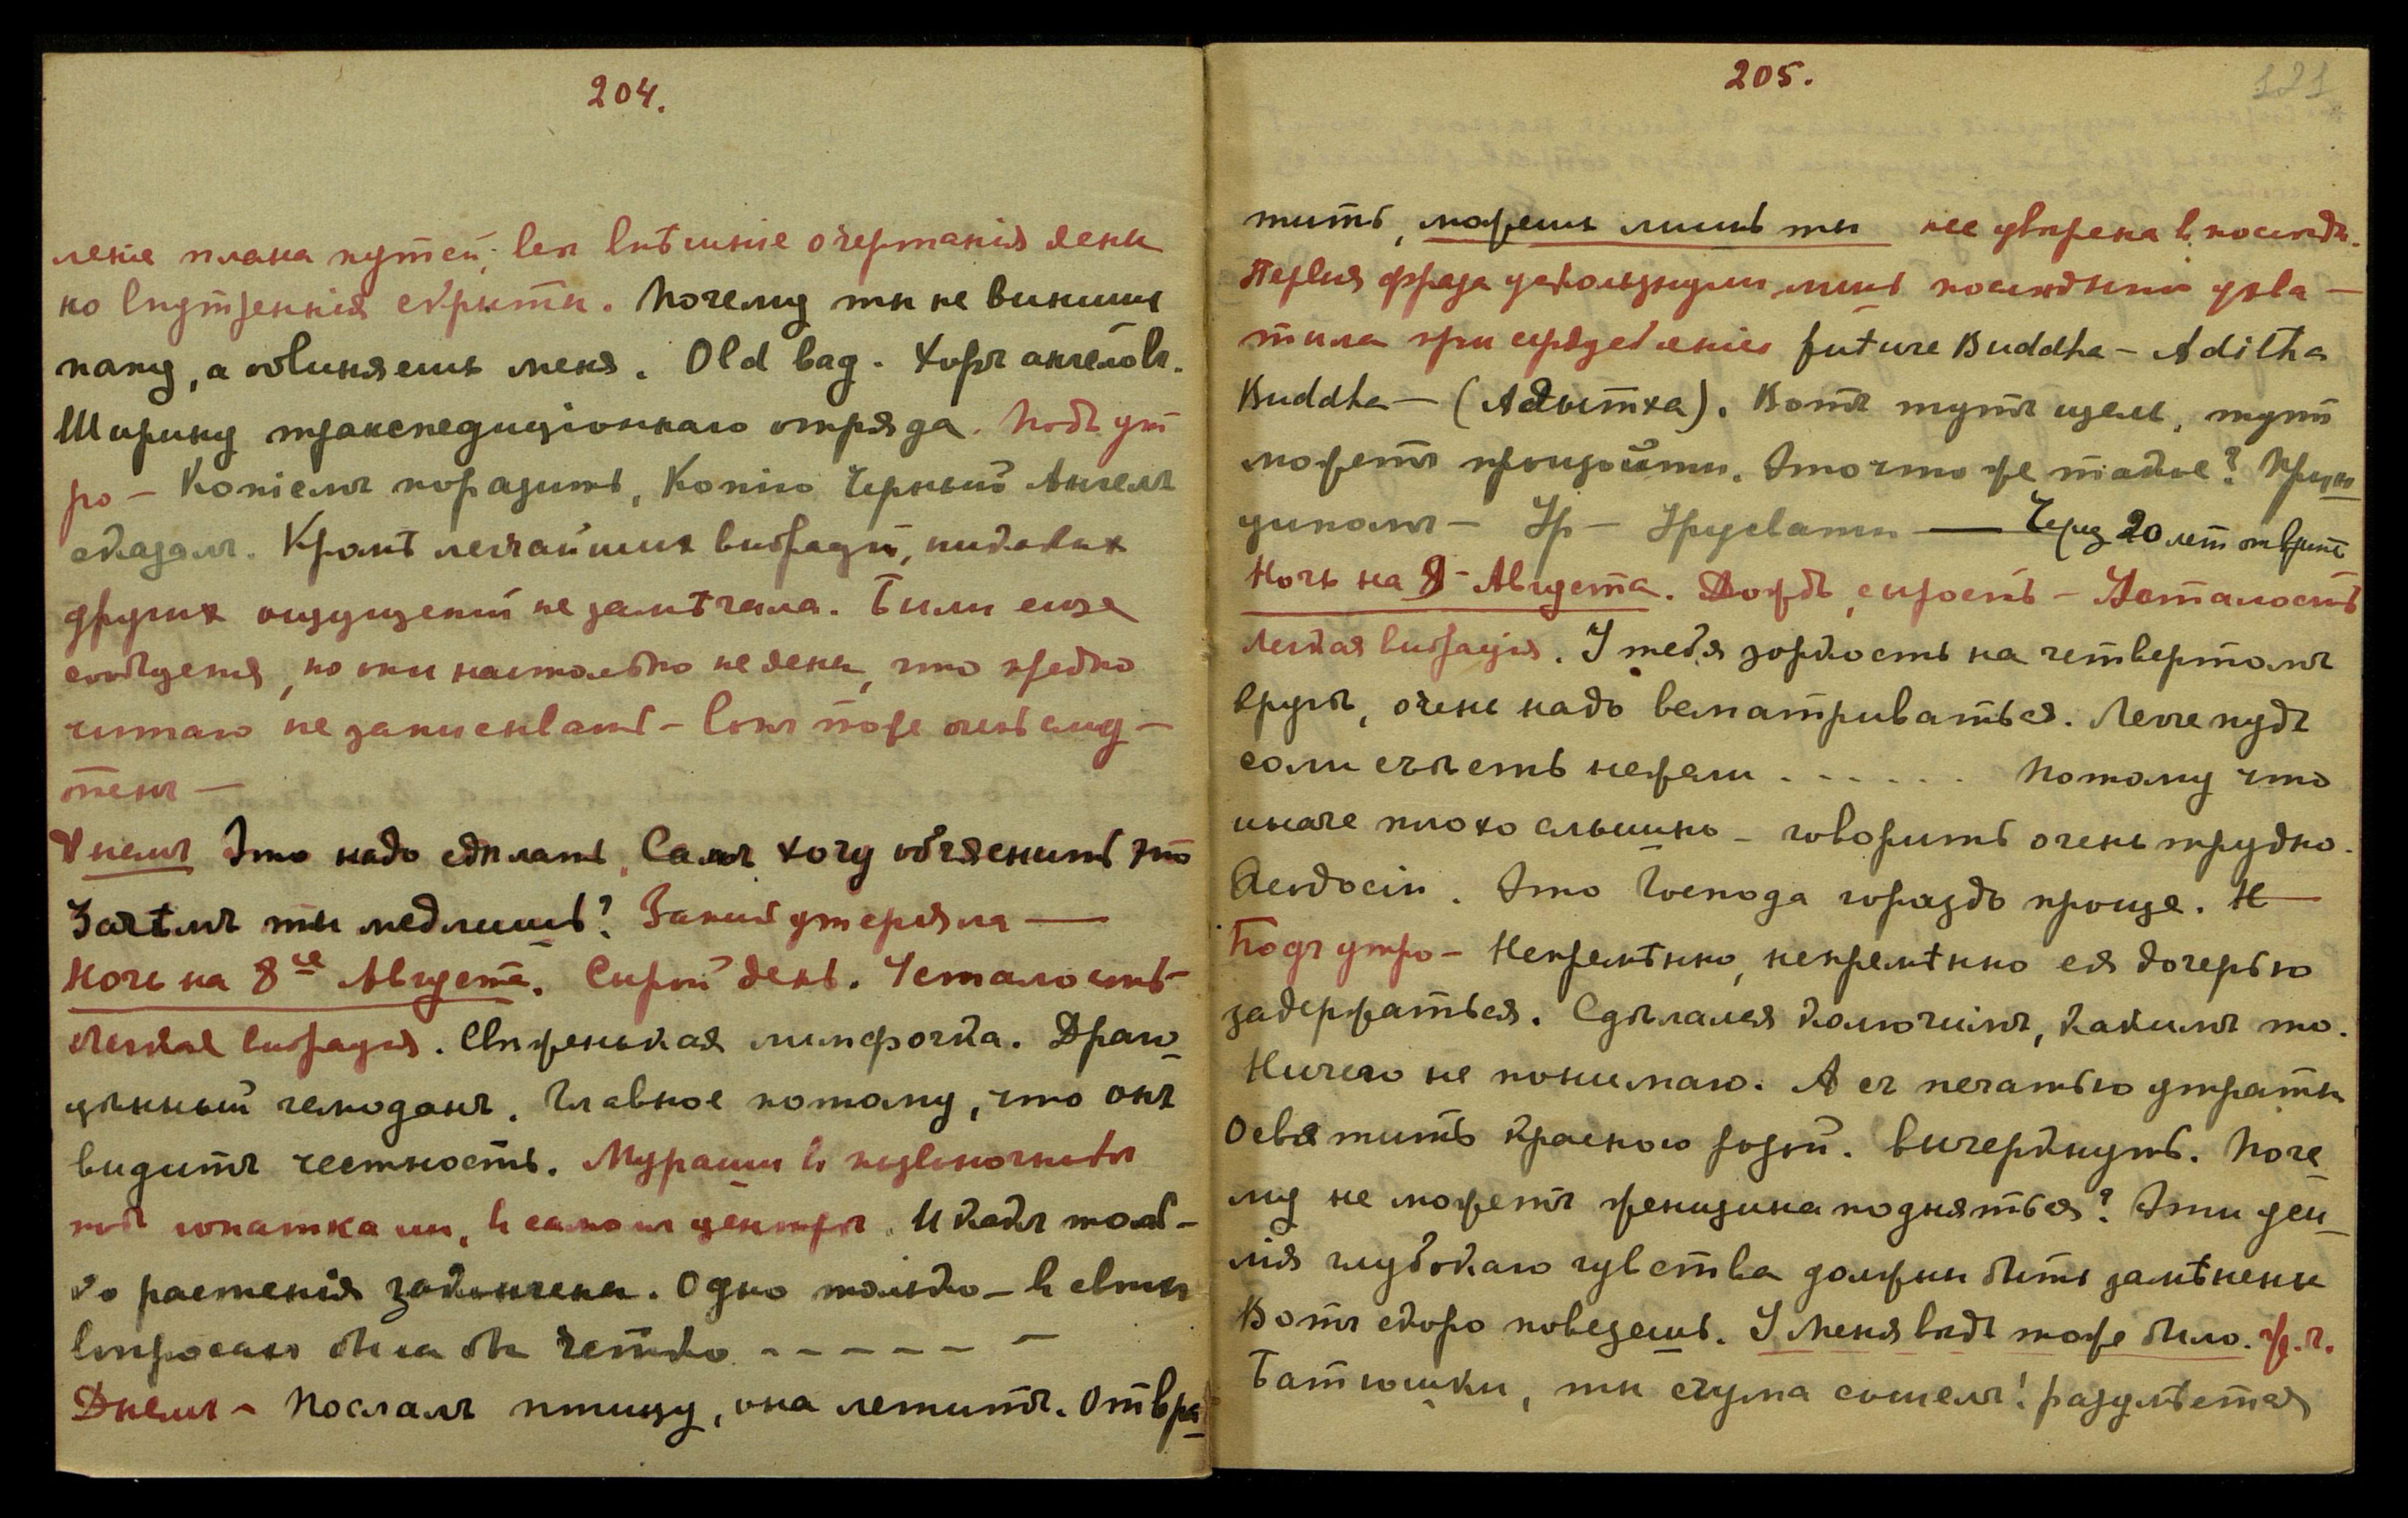 204.
ленiе плана путей; все внѣшнiе очертанiя ясны
но внутреннiя скрыты. Почему ты не винишь
папу, а обвиняешь меня. Old bag. Хоръ ангеловъ.
Ширину транспедицiоннаго отряда. Подъ ут
ро – Копiемъ поразить, Копiю Черный Ангелъ
сказалъ. Кромѣ легчайших вибрацiй, никаких
других ощущенiй не замѣчала. Были еще
сообщенiя, но они настолько не ясны, что предпо
читаю не записывать – Сонъ тоже очень сму–
тенъ –
Днемъ Это надо сдѣлать. Самъ хочу объяснить это
Зачѣмъ ты медлишь? Запись утеряла —
Ночь на 8ое Августа. Сырой день. Усталость–
легкая вибрацiя. Свѣженькая лимфочка. Драго
цѣнный чемоданъ. Главное потому, что онъ
видитъ честность. Мурашки въ позвоночникѣ
подъ лопатками, въ самомъ центрѣ. И какъ толь–
ко растенiя закончены. Одно только – въ свѣтѣ
вопросаю была бы четко – – – – – –
Днемъ – Послалъ птицу, она летитъ. Отвра
205.
121
тить, можешь лишь ты не увѣрена в послѣдн.
Первыя фраза ускользнули, лишь послѣднiй ухва–
тила при пробужденiи future Buddha – Aditha
Buddha – (Адытха). Вотъ тутъ щель, тутъ
можетъ произойти. Это что же такое? Прин
ципомъ – Ур – Урусвати — Через 20 лет отвѣтъ
Ночь на 9 – Августа. Дождь, сырость – Усталость
Легкая вибрацiя. У тебя зоркость на четвертомъ
кругѣ, очень надо всматриваться. Легче пудъ
соли съѣсть нежели . - . - . . . Потому что
иначе плохо слышно – говорить очень трудно.
Ѳеодосiи. Это Господа гораздо проще. Н—
Подъ утро – Непремѣнно, непремѣнно ея дочерью
задержаться. Сдѣлался колючимъ, какимъ то.
Ничего не понимаю. А съ печатью утраты
Освятить красною розой. Вычеркнуть. Поче
му не можетъ женщина подняться? Эти уси
лiя глубокаго чувства должны быть замѣнены
Вотъ скоро повезешь. У Меня вѣдь тоже было. ж.г.
Батюшки, ты съума сошелъ! разумѣется